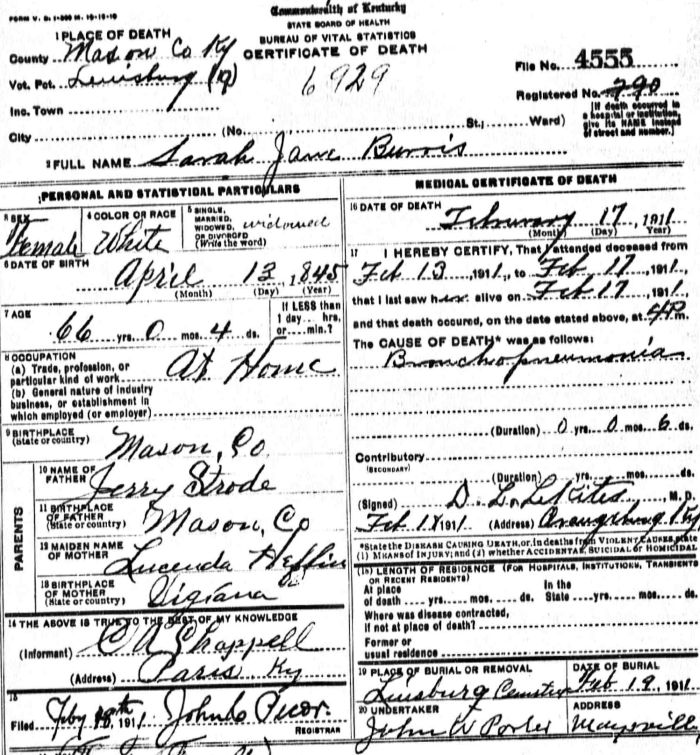 FORM V. S. 1-500 M. 10-15-10
Commonwealth of Kentucky
STATE BOARD OF HEALTH
BUREAU OF VITAL STATISTICS
CERTIFICATE OF DEATH
1 PLACE OF DEATH
County Mason Co Ky
Vot. Pct. Lewisburg
Inc. Town
City (No. St.; Ward)
6929
File No. 4555
Registered No. 790
[If death occurred in
a hospital or institution,
give its NAME instead
of street and number.]
2 FULL NAME Sarah Jane Burris
PERSONAL AND STATISTICAL PARTICULARS
3 SEX Female
4 COLOR OR RACE White
5 SINGLE, MARRIED, WIDOWED, OR DIVORCED (Write the word) widowed
6 DATE OF BIRTH April 13, 1845
(Month) (Day) (Year)
7 AGE 66 yrs. 0 mos. 4 ds.
If LESS than
1 day.... hrs.
or.... min.?
8 OCCUPATION
(a) Trade, profession, or
particular kind of work At Home
(b) General nature of industry
business, or establishment in
which employed (or employer)
9 BIRTHPLACE
(State or country) Mason, Co
PARENTS
10 NAME OF
FATHER Jerry Strode
11 BIRTHPLACE
OF FATHER
(State or country) Mason, Co
12 MAIDEN NAME
OF MOTHER Lucenda Heflin
13 BIRTHPLACE
OF MOTHER
(State or country)
14 THE ABOVE IS TRUE TO THE BEST OF MY KNOWLEDGE
(Informant) C A Chappell
(Address) Paris Ky
15
Filed 1911 REGISTRAR
MEDICAL CERTIFICATE OF DEATH
16 DATE OF DEATH February 17, 1911
(Month) (Day) Year)
17 I HEREBY CERTIFY, That I attended deceased from
Feb 13, 1911, to Feb 17, 1911,
that I last saw her alive on Feb 17, 1911,
and that death occured, on the date stated above, at 4 P.m.
The CAUSE OF DEATH* was as follows:
Bronchopneumonia
(Duration) 0 yrs. 0 mos. 6 ds.
Contributory
(SECONDARY)
(Duration) yrs. mos. ds.
(Signed) M. D.
Feb 1911 (Address)
*State the DISEASE CAUSING DEATH, or in deaths from VIOLENT CAUSES, state
(1) MEANS OF INJURY; and (2) whether ACCIDENTAL, SUICIDAL OR HOMICIDAL
18 LENGTH OF RESIDENCE (FOR HOSPITALS, INSTITUTIONS, TRANSIENTS
OR RECENT RESIDENTS)
At place In the
of death yrs. mos. ds. State yrs. mos. ds.
Where was disease contracted,
If not at place of death?
Former or
usual residence
19 PLACE OF BURIAL OR REMOVAL DATE OF BURIAL
Feb 19, 1911
20 UNDERTAKER ADDRESS
John W Porter Maysville